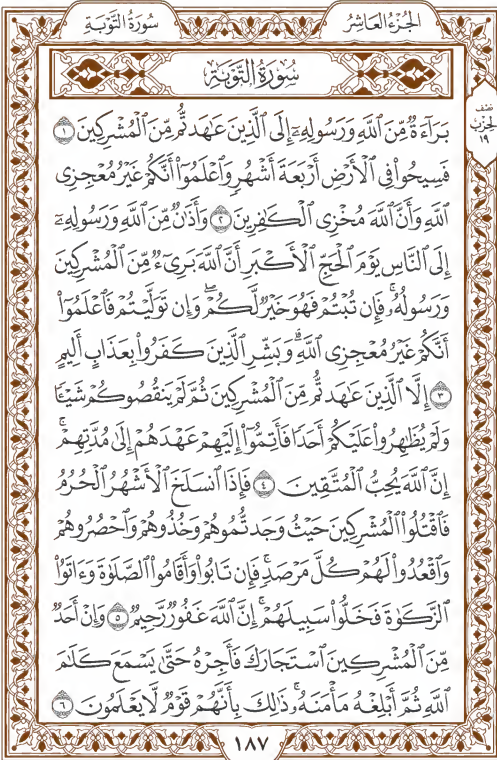 الجُزْءُ العَاشِرُ
سُورَةُ التَّوْبَةِ
سُورَةُ التَّوْبَةِ
نصف
الحزب
١٩
بَرَآءَةٌ مِّنَ ٱللَّهِ وَرَسُولِهِۦٓ إِلَى ٱلَّذِينَ عَٰهَدتُّم مِّنَ ٱلْمُشْرِكِينَ ١
فَسِيحُوا۟ فِى ٱلْأَرْضِ أَرْبَعَةَ أَشْهُرٍ وَٱعْلَمُوٓا۟ أَنَّكُمْ غَيْرُ مُعْجِزِى
ٱللَّهِ وَأَنَّ ٱللَّهَ مُخْزِى ٱلْكَٰفِرِينَ ٢ وَأَذَٰنٌ مِّنَ ٱللَّهِ وَرَسُولِهِۦٓ
إِلَى ٱلنَّاسِ يَوْمَ ٱلْحَجِّ ٱلْأَكْبَرِ أَنَّ ٱللَّهَ بَرِىٓءٌ مِّنَ ٱلْمُشْرِكِينَ
وَرَسُولُهُۥ ۚ فَإِن تُبْتُمْ فَهُوَ خَيْرٌ لَّكُمْ ۖ وَإِن تَوَلَّيْتُمْ فَٱعْلَمُوٓا۟
أَنَّكُمْ غَيْرُ مُعْجِزِى ٱللَّهِ ۗ وَبَشِّرِ ٱلَّذِينَ كَفَرُوا۟ بِعَذَابٍ أَلِيمٍ
٣ إِلَّا ٱلَّذِينَ عَٰهَدتُّم مِّنَ ٱلْمُشْرِكِينَ ثُمَّ لَمْ يَنقُصُوكُمْ شَيْـًٔا
وَلَمْ يُظَٰهِرُوا۟ عَلَيْكُمْ أَحَدًا فَأَتِمُّوٓا۟ إِلَيْهِمْ عَهْدَهُمْ إِلَىٰ مُدَّتِهِمْ ۚ
إِنَّ ٱللَّهَ يُحِبُّ ٱلْمُتَّقِينَ ٤ فَإِذَا ٱنسَلَخَ ٱلْأَشْهُرُ ٱلْحُرُمُ
فَٱقْتُلُوا۟ ٱلْمُشْرِكِينَ حَيْثُ وَجَدتُّمُوهُمْ وَخُذُوهُمْ وَٱحْصُرُوهُمْ
وَٱقْعُدُوا۟ لَهُمْ كُلَّ مَرْصَدٍ ۚ فَإِن تَابُوا۟ وَأَقَامُوا۟ ٱلصَّلَوٰةَ وَءَاتَوُا۟
ٱلزَّكَوٰةَ فَخَلُّوا۟ سَبِيلَهُمْ ۚ إِنَّ ٱللَّهَ غَفُورٌ رَّحِيمٌ ٥ وَإِنْ أَحَدٌ
مِّنَ ٱلْمُشْرِكِينَ ٱسْتَجَارَكَ فَأَجِرْهُ حَتَّىٰ يَسْمَعَ كَلَٰمَ
ٱللَّهِ ثُمَّ أَبْلِغْهُ مَأْمَنَهُۥ ۚ ذَٰلِكَ بِأَنَّهُمْ قَوْمٌ لَّا يَعْلَمُونَ ٦
١٨٧